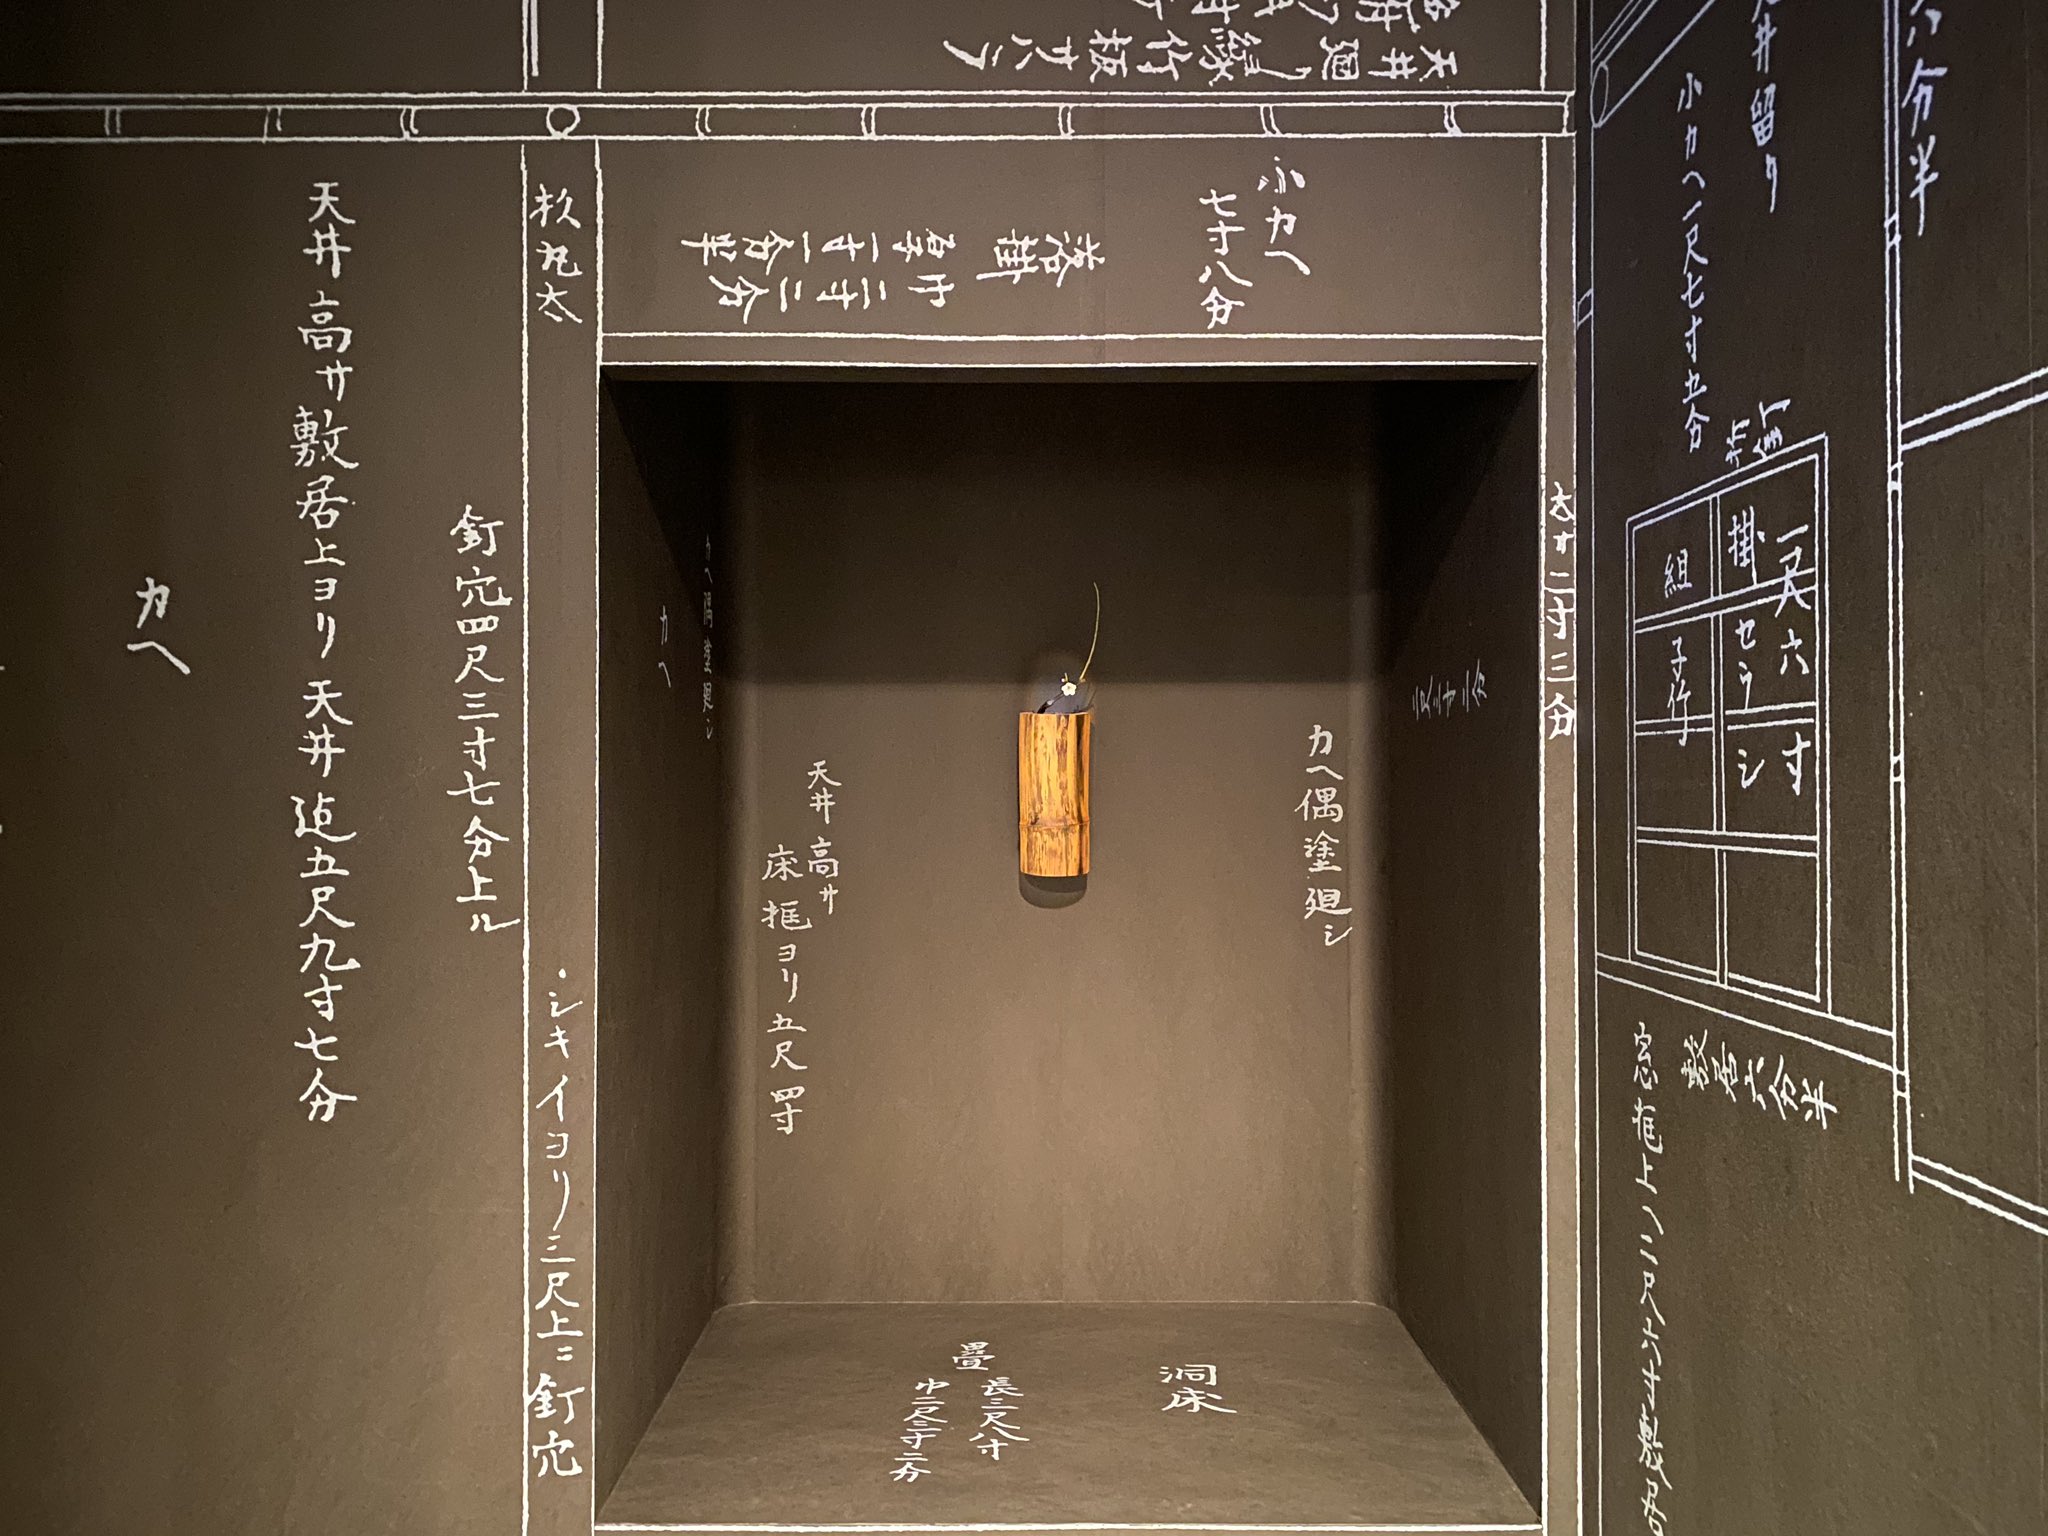 天井廻リ縁竹板サハラ
六分半
天井留リ
小カヘ一尺七寸五分
小カヘ
七寸八分
落掛
巾二寸二分
厚一寸一分半
杉丸太
シキイヨリ三尺上ニ釘穴
釘穴四尺三寸七分上ル
天井高サ敷居上ヨリ天井迠五尺九寸七分
カヘ
太サ二寸三分
一尺六寸
掛セウシ
組子竹
敷居六分半
カヘ偶塗廻シ
天井高サ
床框ヨリ五尺四寸
カヘ偶塗廻シ
カヘ
洞床
畳
長三尺八寸
巾二尺三寸二分